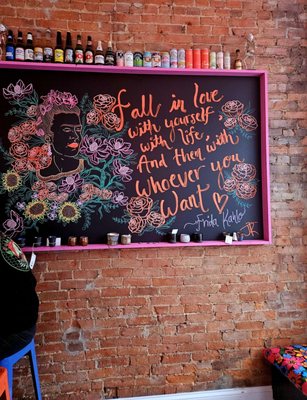 Fall in love
with yourself,
with life,
And then with
whoever you
Want
~Frida Kahlo
JR